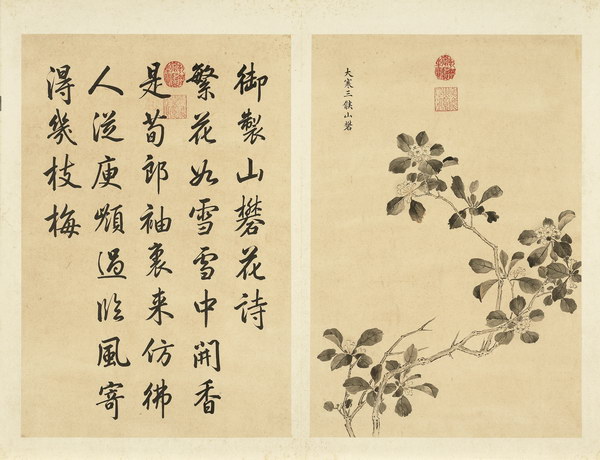 大寒三候山礬
御製山礬花詩
繁花如雪雪中開香
是荀郎袖裏来仿彿
人從庾嶺過臨風寄
得幾枝梅